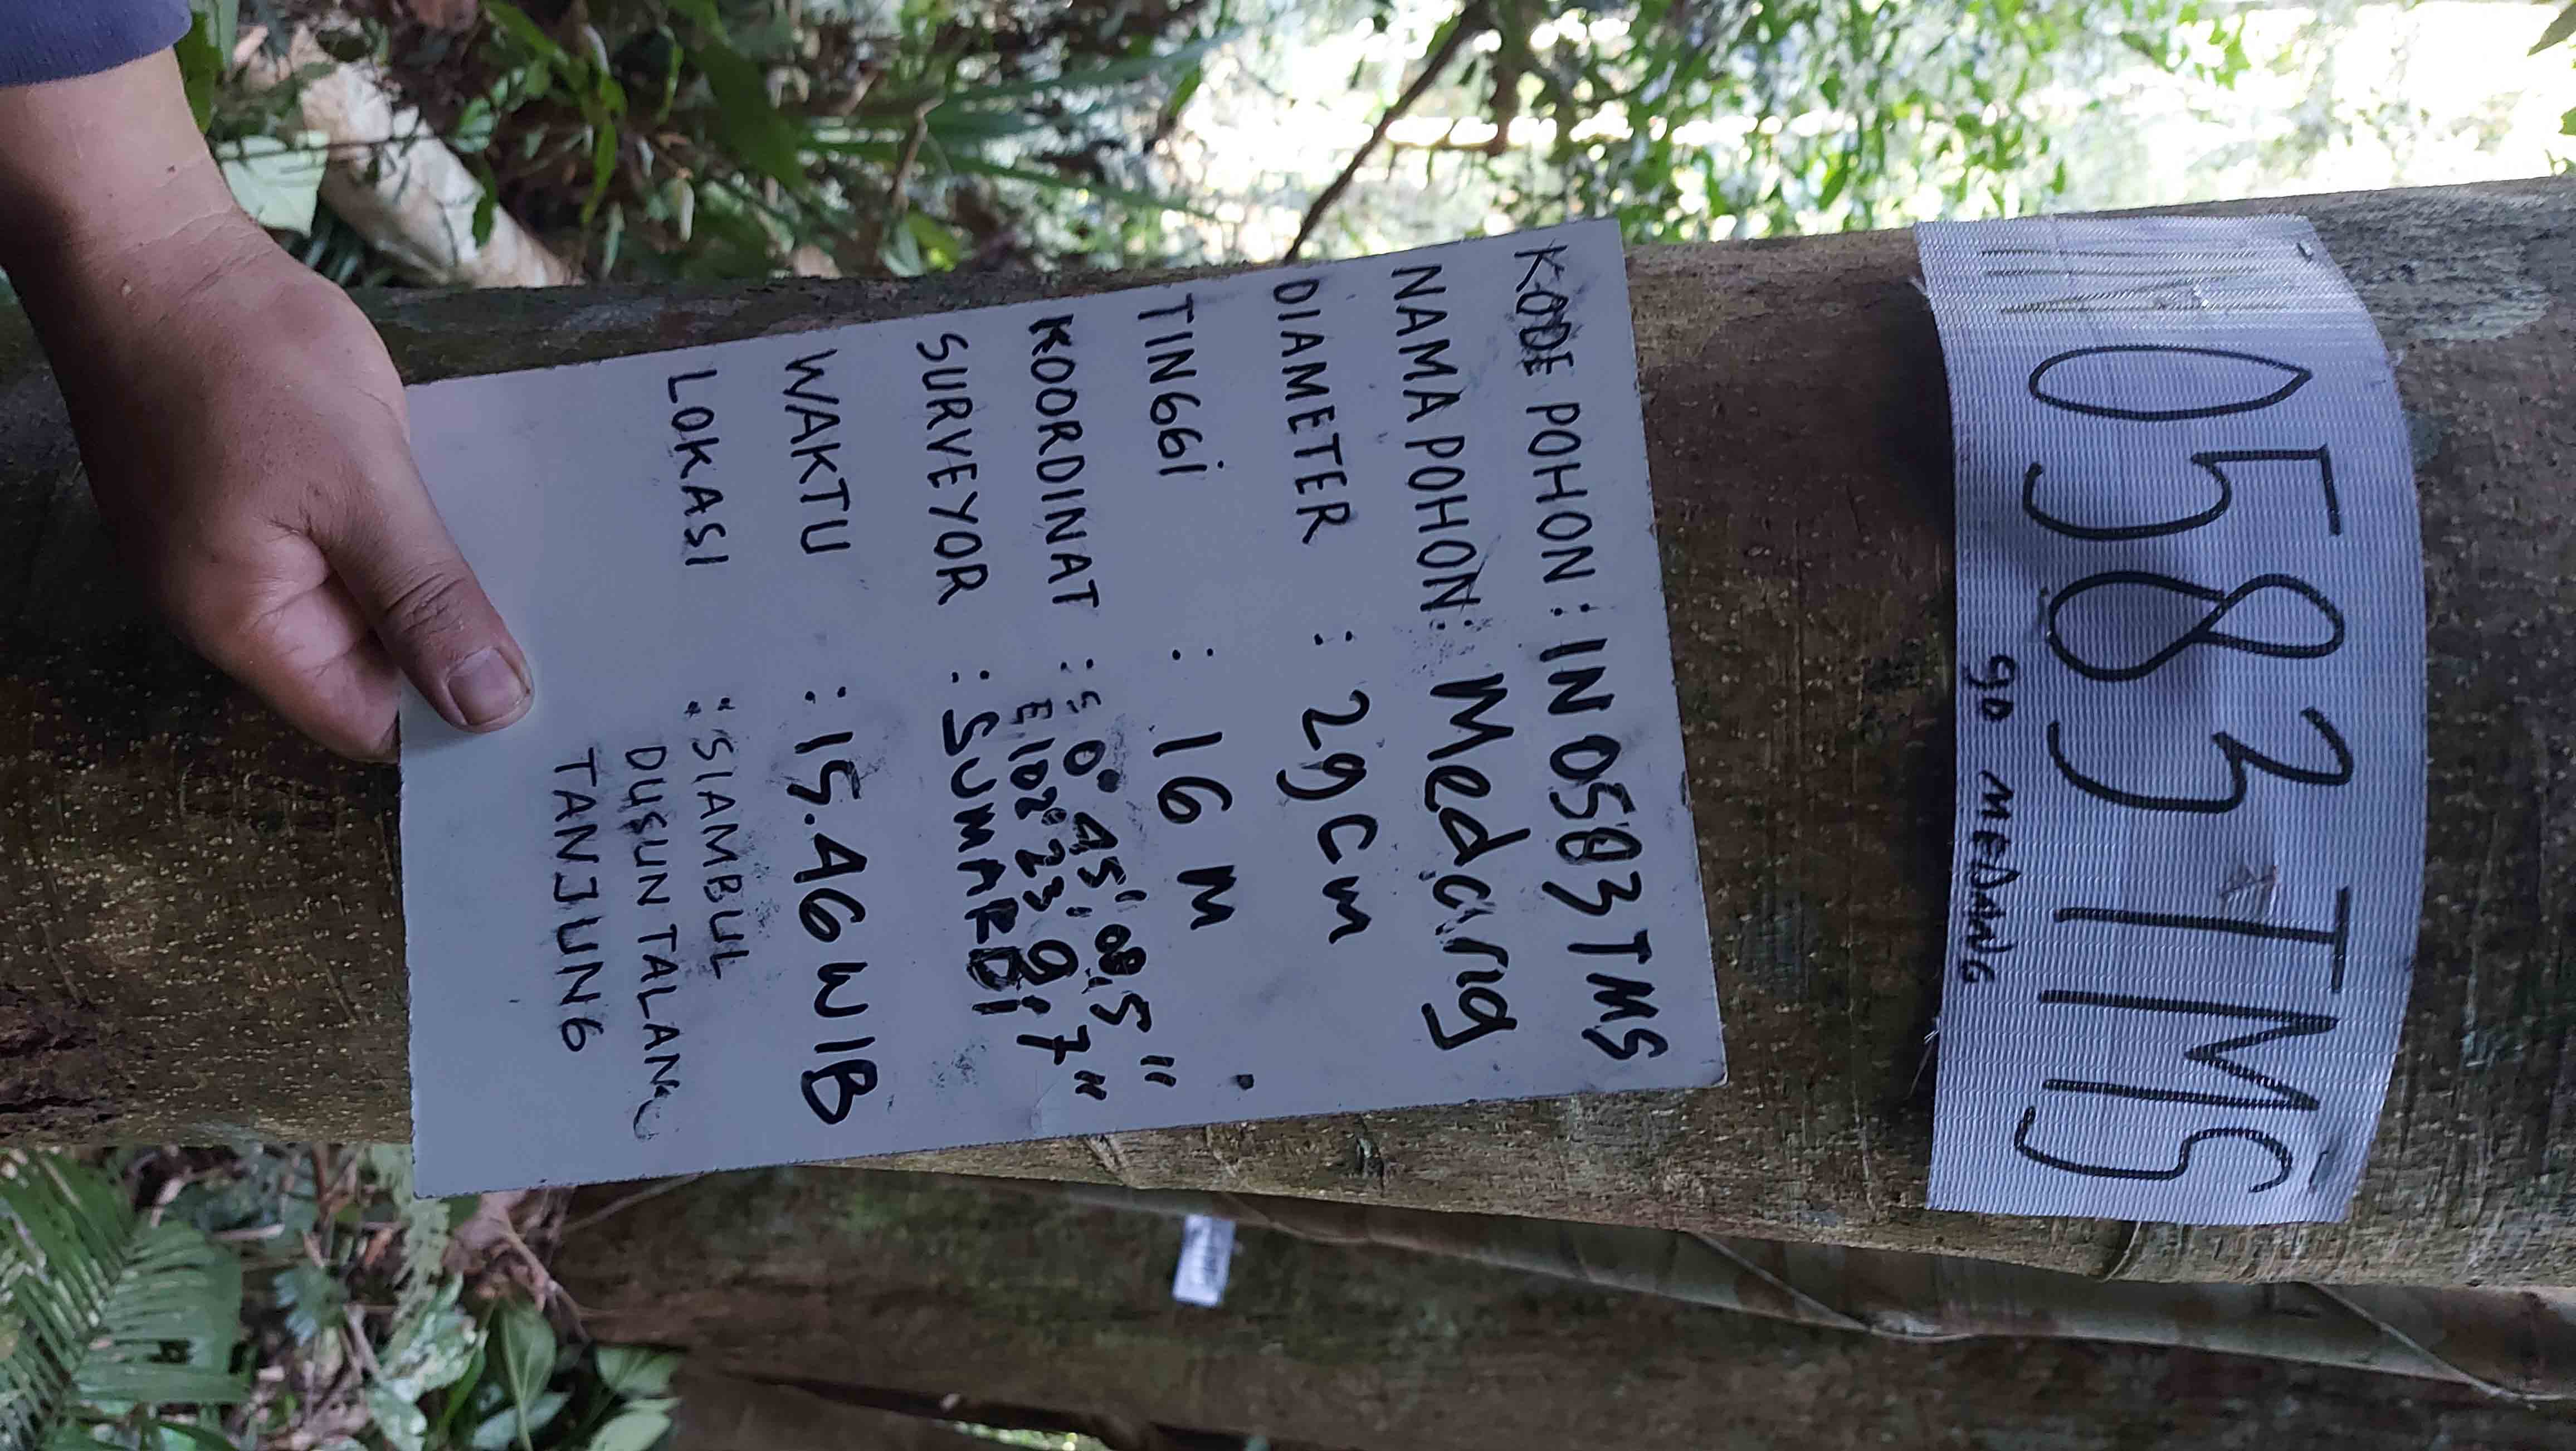 IN 0583 TMS
90 MEDANG
KODE POHON : IN 0583 TMS
NAMA POHON : Medang
DIAMETER : 29 Cm
TINGGi : 16 M
KOORDINAT : S 0° 45' 08,5"
E 102° 23' 9,7"
SURVEYOR : SUMARDi
WAKTU : 15.46 WIB
LOKASI : SIAMBUL
DUSUN TALANG
TANJUNG